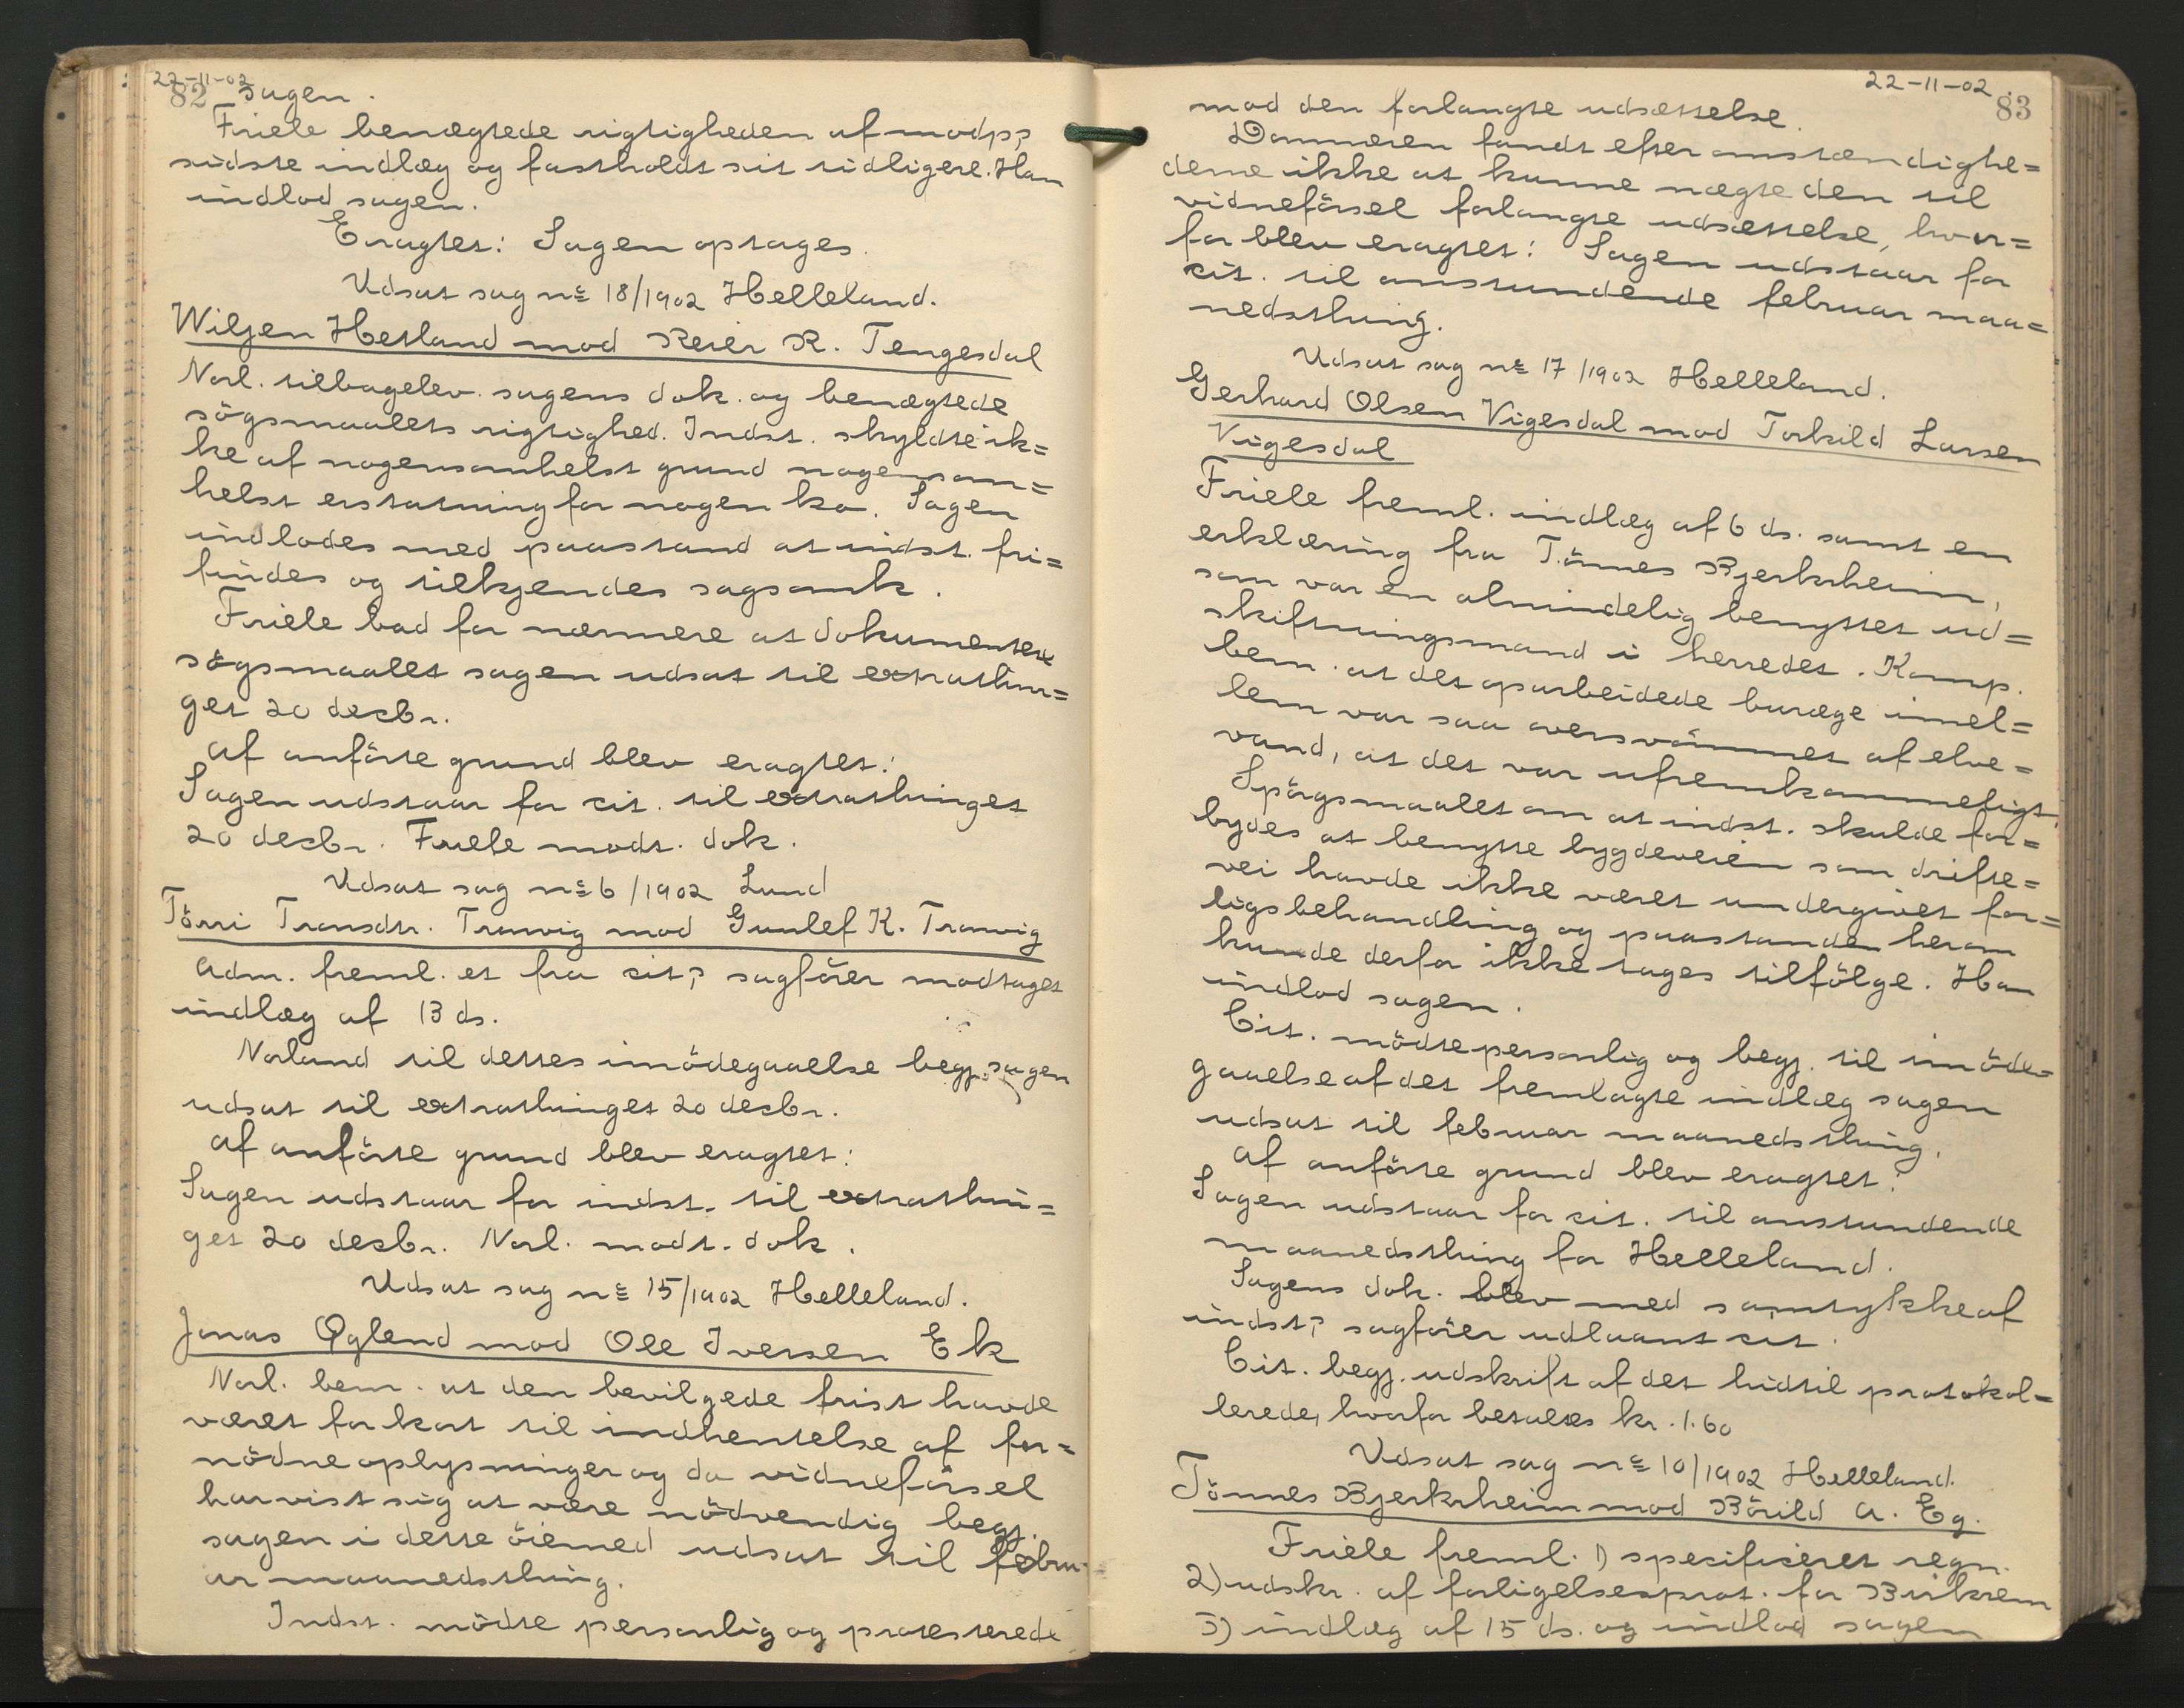 22-11-02
82 sagen.
Friele benægtede rigtigheden af modp?
sidste indlæg og fastholdt sit tidligere. Han
indlod sagen.
Eragtet: Sagen optages.
Udsat sag nº 18/1902 Helleland.
Wiljen Hetland mod Reier R. Tengesdal
Norl. tilbagelev. sagens dok. og benægtede
sögsmaalets rigtighed. Indst. skyldte ik=
ke af nogensomhelst grund nogensom=
helst erstatning for nogen ko. Sagen
indlodes med paastand at indst. fri=
findes og tilkjendes sagsomk.
Friele bad for nærmere at dokumentere
sögsmaalet sagen udsat til extrathin=
get 20 decbr.
Af anförte grund blev eragtet:
Sagen udstaar for cit. til extrathinget
20 decbr. Friele modt. dok.
Udsat sag nº 6/1902 Lund
Törri Tronsdtr. Tronvig mod Gunlef K. Tronvig
Adm. freml. et fra cit? sagförer modtaget
indlæg af 13 ds.
Norland til dettes imödegaaelse begj. sagen
udsat til extrathinget 20 decbr.
Af anförte grund blev eragtet:
Sagen udstaar for indst. til extrathin=
get 20 decbr. Norl. modt. dok.
Udsat sag nº 15/1902 Helleland.
Jonas Öglend mod Ole Iversen Ek
Norl. bem. at den bevilgede frist havde
været for kort til indhentelse af for=
nödne oplysninger og da vidneförsel
har vist sig at være nödvendig begj.
sagen i dette öiemed udsat til febru=
ar maanedsthing.
Indst. mödte personlig og protesterede
22-11-02
83
mod den forlangte udsættelse.
Dommeren fandt efter omstændighe=
derne ikke at kunne nægte den til
vidneförsel forlangte udsættelse, hvor=
for blev eragtet: Sagen udstaar for
cit. til anstundende februar maa=
nedsthing.
Udsat sag nº 17/1902 Helleland.
Gerhard Olsen Vigesdal mod Torkild Larsen
Vigesdal
Friele freml. indlæg af 6 ds. samt en
erklæring fra Tönnes Bjerkrheim,
som var en almindelig benyttet ud=
skiftningsmand i herredet. Komp.
bem. at det oparbeidede buræge imel=
lem var saa oversvömmet af elve=
vand, at det var ufremkommeligt.
Spörgsmaalet om at indst. skulde for=
bydes at benytte bygdeveien som drifte=
vei havde ikke været undergivet for=
ligsbehandling og paastanden herom
kunde derfor ikke tages tilfölge. Han
indlod sagen.
Cit. mödte personlig og begj. til imöde=
gaaelse af det fremlagte indlæg sagen
udsat til februar maanedsthing.
Af anförte grund blev eragtet:
Sagen udstaar for cit. til anstundende
maanedsthing for Helleland.
Sagens dok. blev med samtykke af
indst? sagförer udlaant cit.
Cit. begj. udskrift af det hidtil protokol=
lerede, hvorfor betaltes kr. 1.60
Udsat sag nº 10/1902 Helleland.
Tönnes Bjerkrheim mod Börild A. Eg.
Friele freml. 1) specificeret regn.
2) udskr. af forligelsesprot. for Birkrem
3) indlæg af 15 ds. og indlod sagen